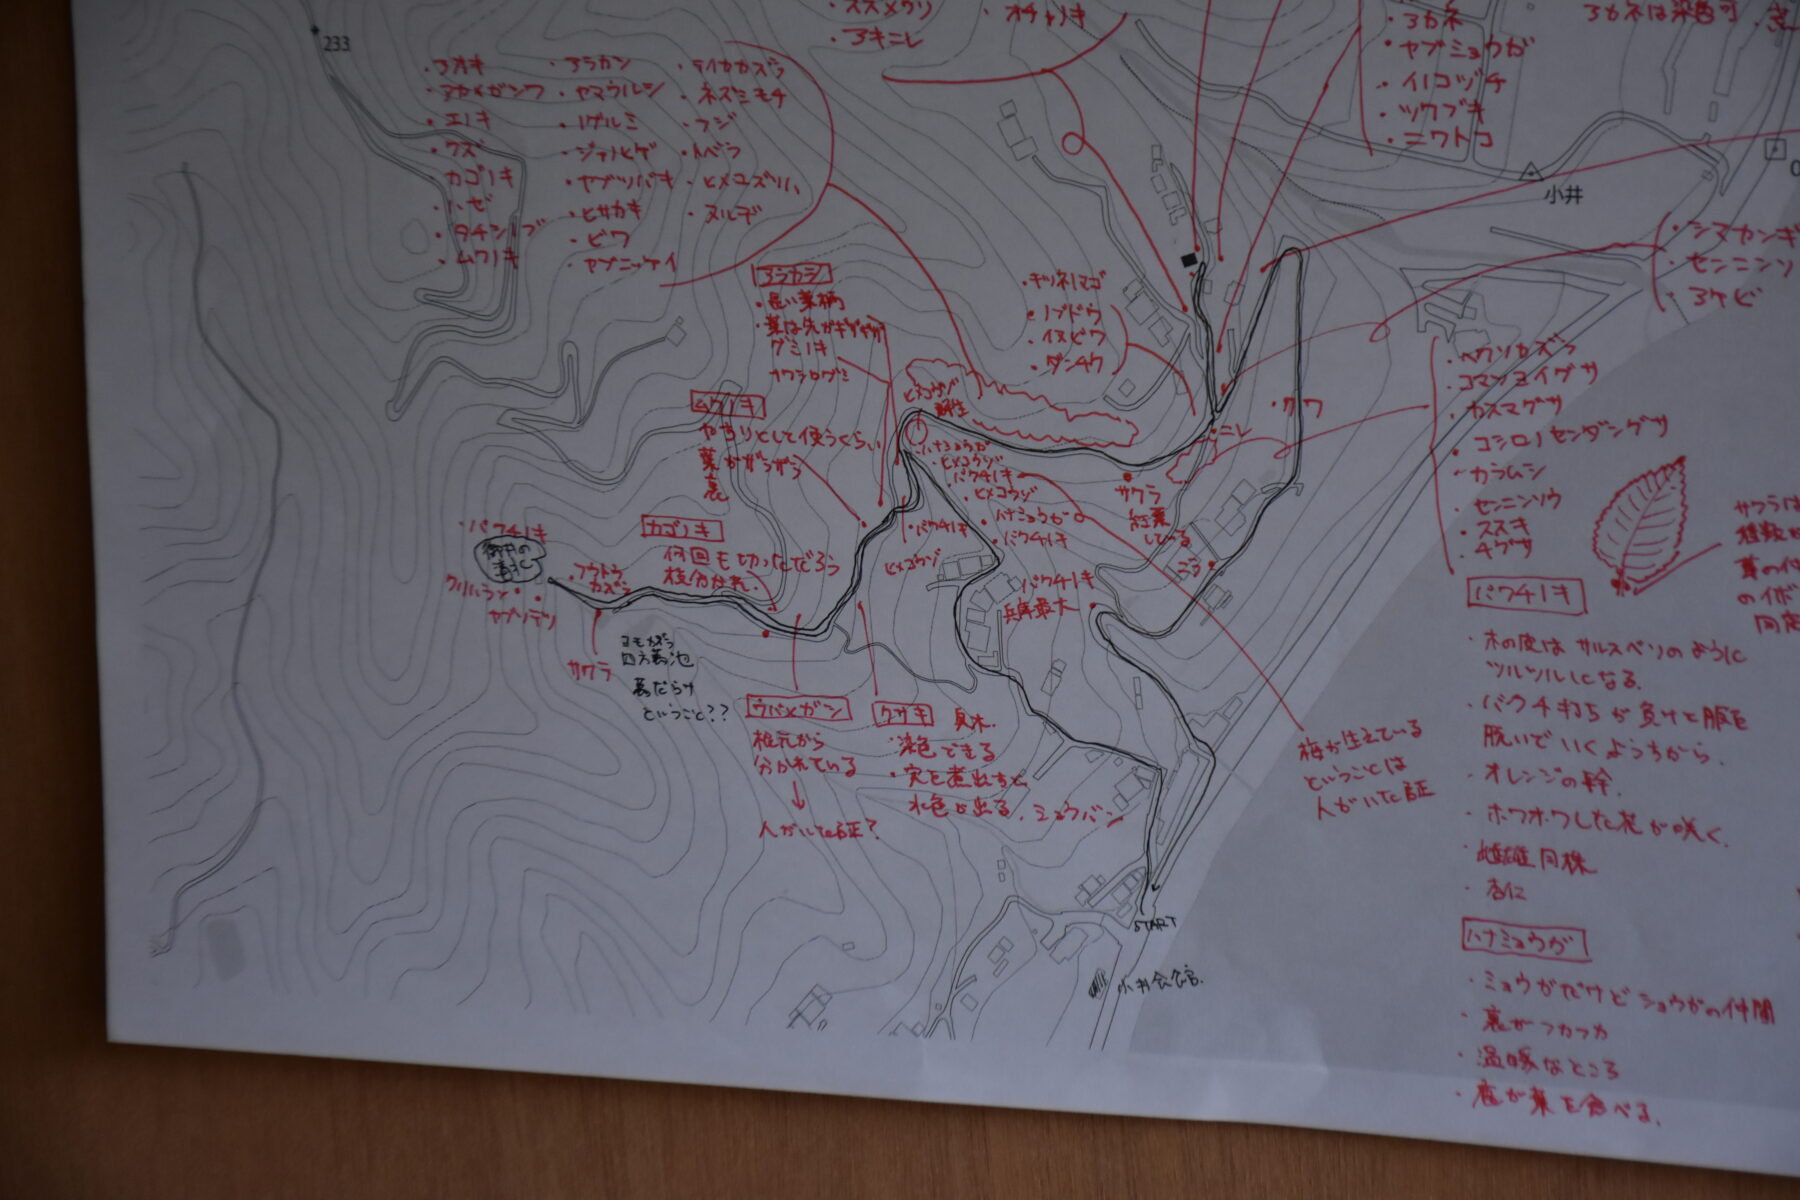 233
・スズメウリ
・オチャノキ
・アキニレ
・アオキ
・アカメガシワ
・エノキ
・クズ
・カゴノキ
・ハゼ
・タチシノブ
・ムクノキ
・アラカシ
・ヤマウルシ
・ノグルミ
・ジャノヒゲ
・ヤブツバキ
・ヒサカキ
・ビワ
・ヤブニッケイ
・テイカカズラ
・ネズミモチ
・フジ
・トベラ
・ヒメユズリハ
・ヌルデ
・アカネ
・ヤブミョウガ
・イノコヅチ
・ツワブキ
・ニワトコ
アカネは染色可
小井
・シマカンギ
・センニンソ
・アケビ
アラカシ
・長い葉柄
・葉は先がギザギザ
グミノキ
ナワシログミ
キツネノマゴ
・ノブドウ
・イヌビワ
・ダンチク
ムクノキ
やすりとして使うくらい
葉がざらざら
裏
ヒメコウゾ
野生
・ハナミョウガ
・ヒメコウゾ
・バクチノキ
・ヒメコウゾ
・ハナミョウガ
・バクチノキ
・バクチノキ
ヒメコウゾ
・クワ
サクラ
紅葉
している
バクチノキ
兵庫最大
・バクチノキ
カゴノキ
何回も切ったんだろう
枝分かれ。
・フウトウ
カズラ
ヤブソテツ
サクラ
ヨモカズラ
四方葛池
葛だらけ
ということ??
ウバメガシ
根元から
分かれている
↓
人がいた証?
クサキ
・染色できる
・実を煮出すと
水色が出る。ミョウバン
梅が生えている
ということは
人がいた証
・ヘクソカズラ
・コマツヨイグサ
・カスマグサ
・コシロノセンダングサ
・カラムシ
・センニンソウ
・ススキ
・チグサ
サクラは
種類が
葉の付
のイボ
同定
バクチノキ
・木の皮はサルスベリのように
ツルツルになる。
・バクチ打ちが負けと服を
脱いでいくようすから。
・オレンジの幹。
・ホワホワした花が咲く。
・雌雄同株
・杏に
ハナミョウガ
・ミョウガだけどショウガの仲間
・裏がフカフカ
・温暖なところ
・鹿が葉を食べる。
START
小井会館